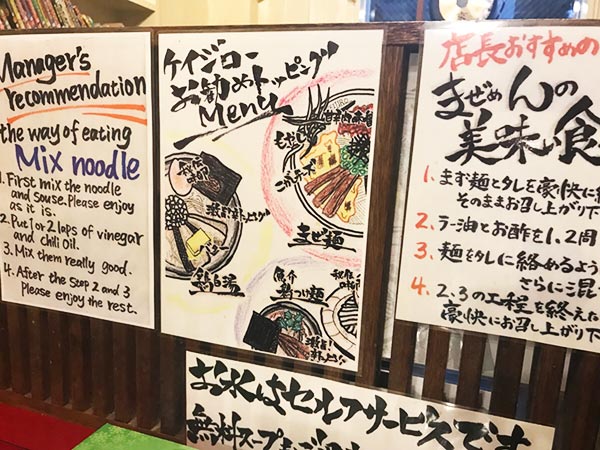 Manager's
recommendation
the way of eating
Mix noodle
1. First mix the noodle
and souse. Please enjoy
as it is.
2. Put 1 or 2 laps of vinegar
and chili oil.
3. Mix them really good.
4. After the Step 2 and 3
please enjoy the rest.
ケイジロー
お勧めトッピング
Menu
まぜ麺
鶏白湯
魚介
鶏つけ麺
店長おすすめの
まぜめんの
美味い食
1. まず麺とタレを豪快に
そのままお召し上がり下
2. ラー油とお酢を1、2周
3. 麺をタレに絡めるよう
さらに混
4. 2、3の工程を終えた
豪快にお召し上がり下
お水はセルフサービスです
無料スープも